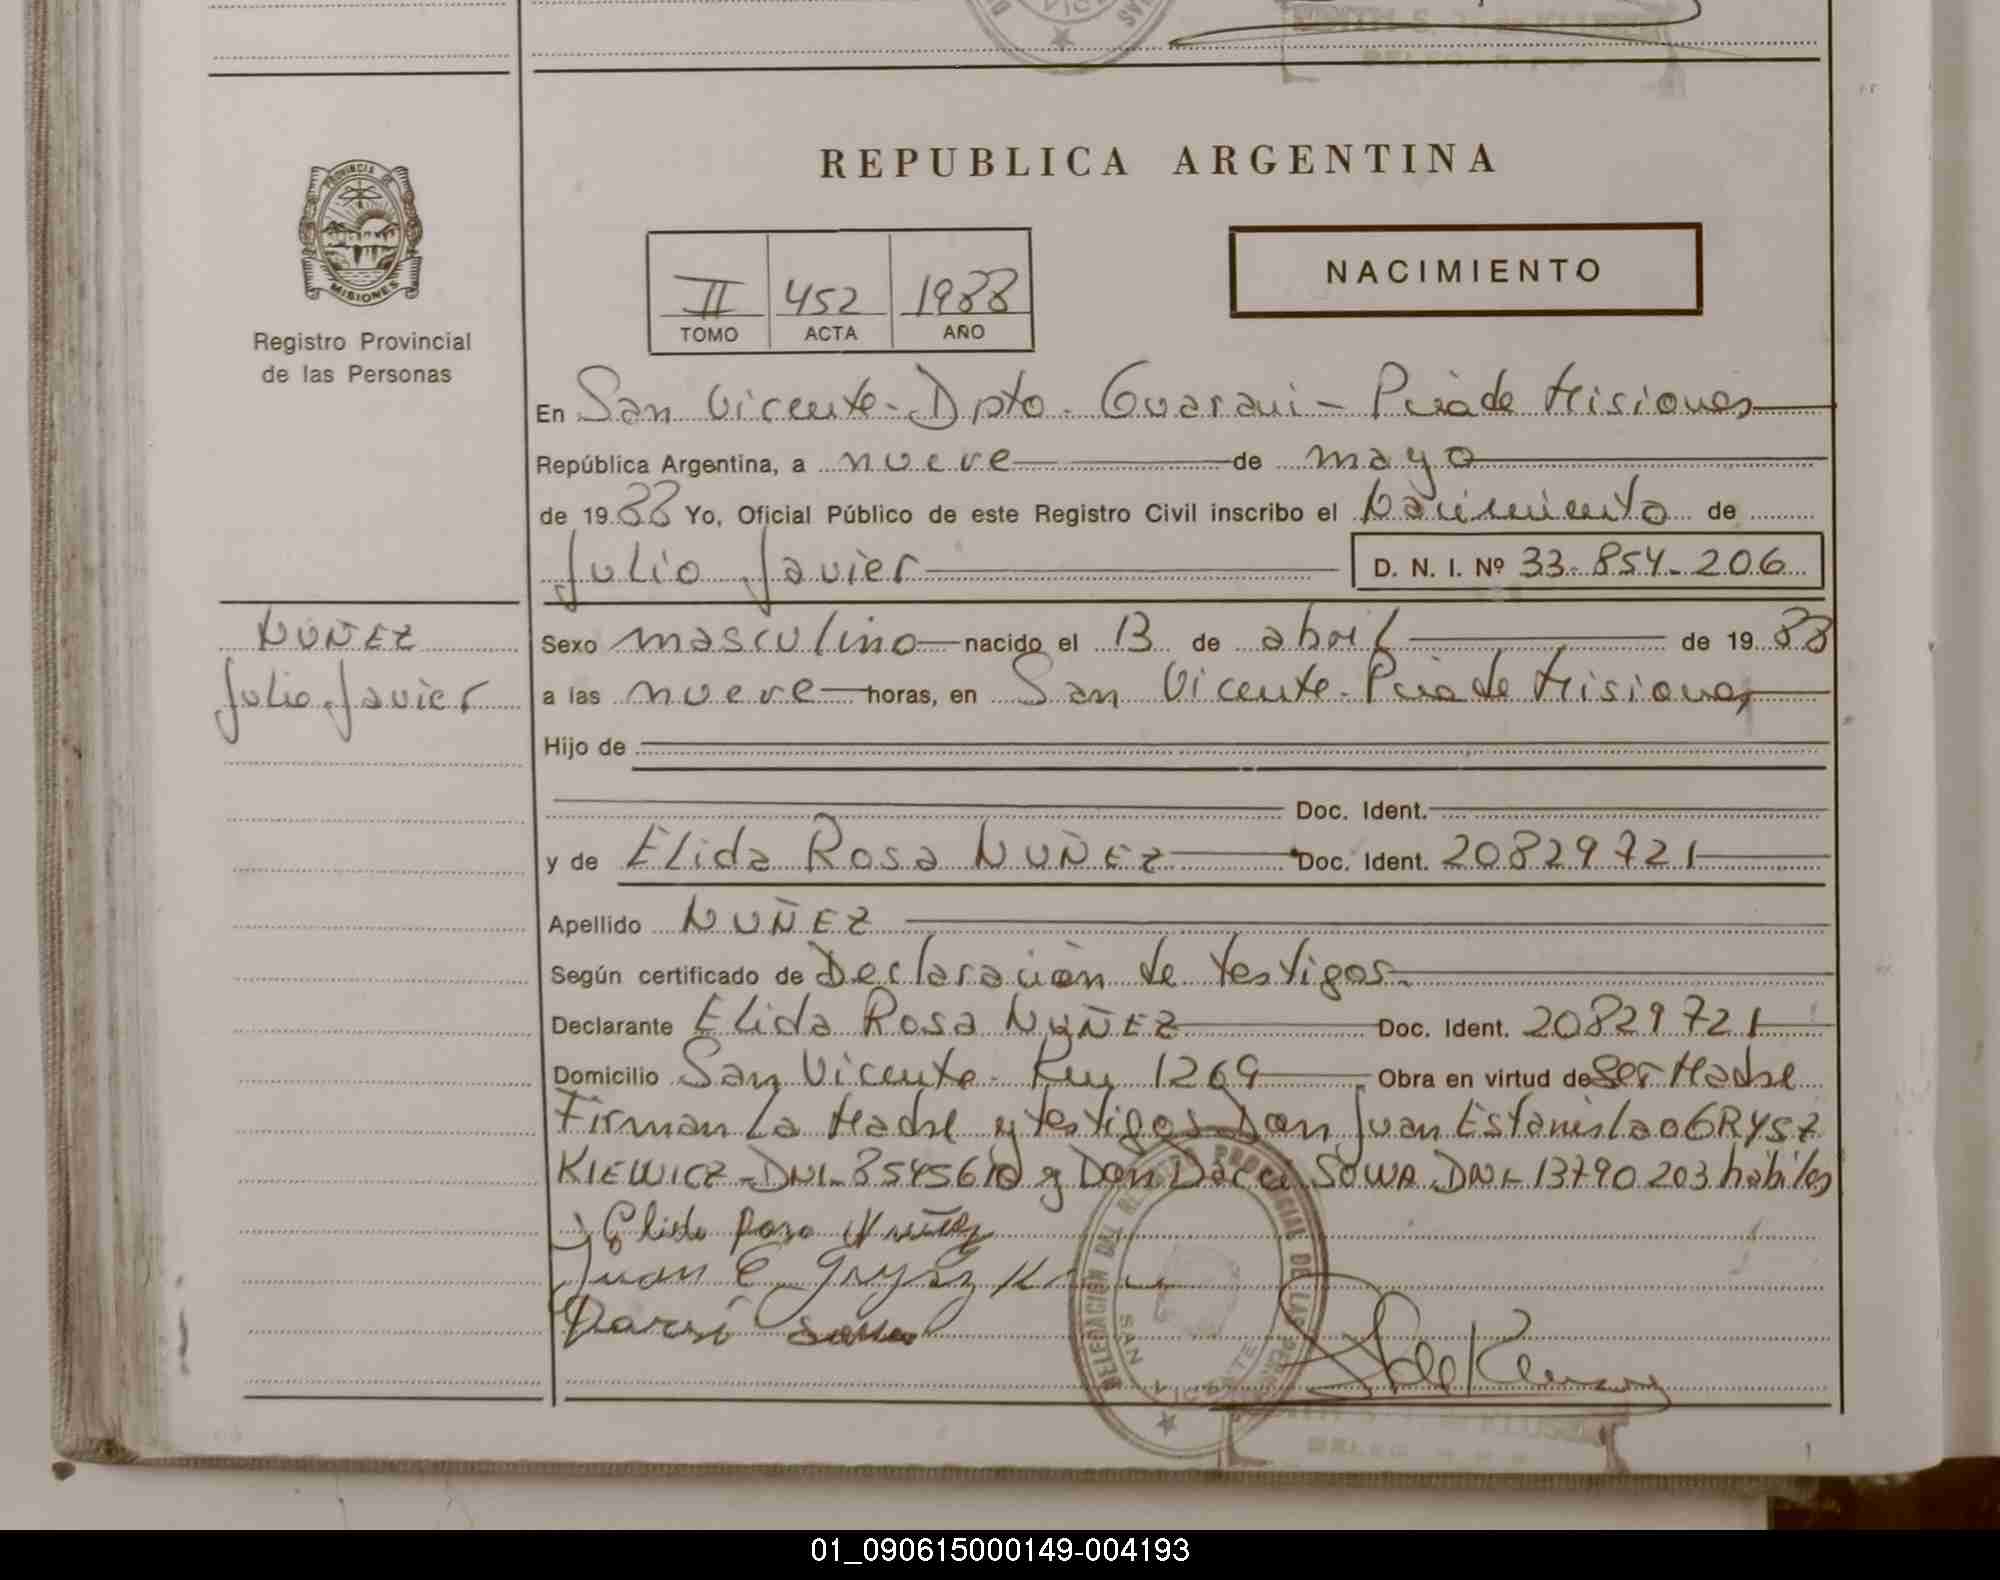 REPUBLICA ARGENTINA
PROVINCIA DE
MISIONES
Registro Provincial
de las Personas
II 452 1988
TOMO ACTA AÑO
NACIMIENTO
En San Vicente - Dpto. Guarani - Pcia de Misiones
República Argentina, a nueve de mayo
de 1988 Yo, Oficial Público de este Registro Civil inscribo el Nacimiento de
Julio Javier D. N. I. Nº 33.854.206
NUÑEZ
Julio Javier
Sexo masculino nacido el 13 de abril de 1988
a las nueve horas, en San Vicente - Pcia de Misiones
Hijo de
Doc. Ident.
y de Elida Rosa NUÑEZ Doc. Ident. 20829721
Apellido NUÑEZ
Según certificado de Declaración de testigos.
Declarante Elida Rosa NUÑEZ Doc. Ident. 20829721
Domicilio San Vicente - Km 1269 Obra en virtud de ser Madre
Firman La Madre y testigos Don Juan Estanislao GRYSZ
KIEWICZ - DNI - 8545610 y Don Darci SOWA DNI - 13790203 hábiles
Elida Rosa Nuñez
Juan E Grysz
Darsi Sowa
DELEGACION DEL REGISTRO PROVINCIAL DE LAS PERSONAS
SAN VICENTE
01_090615000149-004193